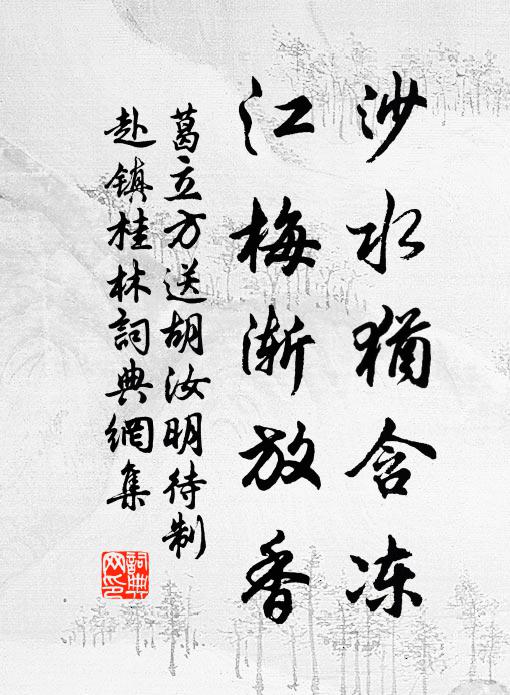 沙水猶含冻
江梅漸放香
葛立方送胡汝明待制
赴镇桂林詞典網集
詞典
网印